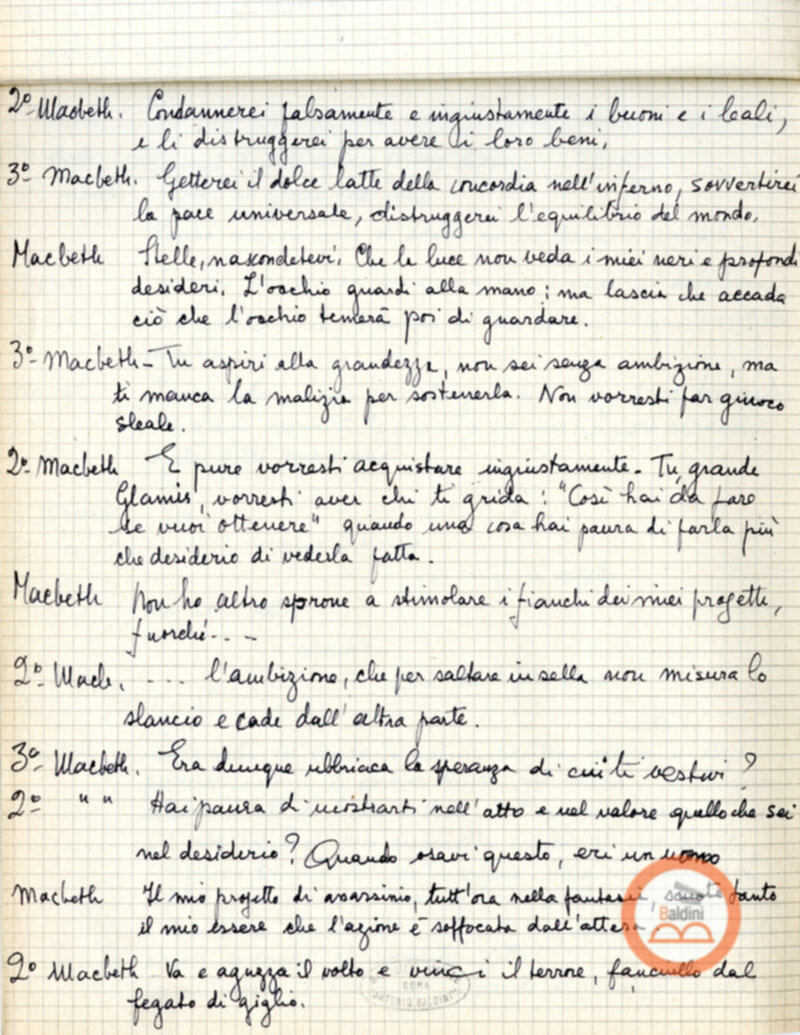 2º Macbeth. Condannerei falsamente e ingiustamente i buoni e i leali,
e li distruggerei per avere i loro beni.
3º Macbeth. Getterei il dolce latte della concordia nell'inferno, sovvertirei
la pace universale, distruggerei l'equilibrio del mondo.
Macbeth Stelle, nascondetevi. Che la luce non veda i miei neri e profondi
desideri. L'occhio guardi alla mano; ma lascia che accada
ciò che l'occhio temerà poi di guardare.
3º Macbeth - Tu aspiri alla grandezza, non sei senza ambizione, ma
ti manca la malizia per sostenerla. Non vorresti far giuoco
sleale.
2º Macbeth E pure vorresti acquistare ingiustamente - Tu, grande
Glamis, vorresti aver chi ti grida: "Così hai da fare
se vuoi ottenere" quando una cosa hai paura di farla più
che desiderio di vederla fatta.
Macbeth Non ho altro sprone a stimolare i fianchi dei miei progetti,
fuorché - - -
2º Macb. - - - l'ambizione, che per saltare in sella non misura lo
slancio e cade dall'altra parte.
3º Macbeth. Era dunque ubbriaca la speranza di cui ti vestivi?
2º " " Hai paura di mostrarti nell'atto e nel valore quello che sei
nel desiderio? Quando osavi questo, eri un uomo
Macbeth Il mio progetto di assassinio, tutt'ora nella fantasia, scuote tanto
il mio essere che l'azione è soffocata dall'attesa.
2º Macbeth Va e aguzza il volto e vinci il terrore, fanciullo dal
fegato di giglio.
Baldini
ROMA